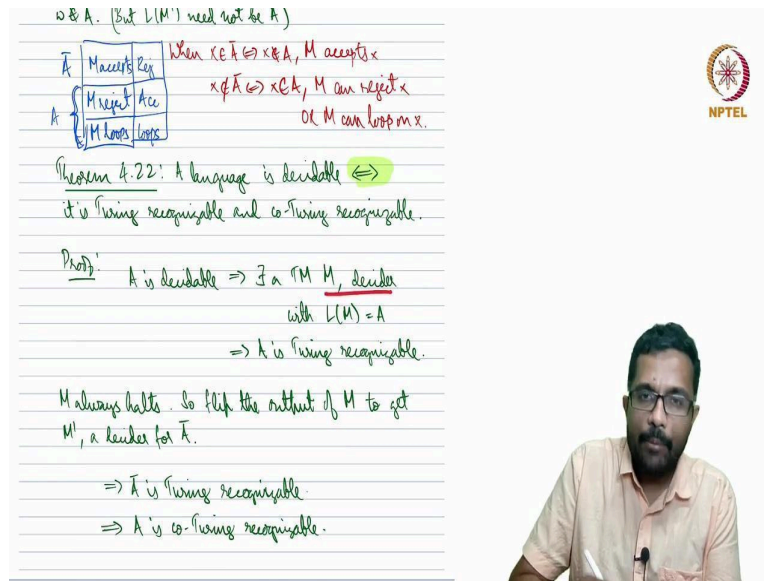 w∉A. (But L(M') need not be A)
Ā M accepts Rej
A M reject Acc
M loops loops
When x∈Ā ⇔ x∉A, M accepts x
x∉Ā ⇔ x∈A, M can reject x
OR M can loop on x.
NPTEL
Theorem 4.22: A language is decidable ⇔
it is Turing recognizable and co-Turing recognizable.
Proof:
A is decidable ⇒ ∃ a TM M, decider
with L(M) = A
⇒ A is Turing recognizable.
M always halts. So flip the output of M to get
M', a decider for Ā.
⇒ Ā is Turing recognizable.
⇒ A is co-Turing recognizable.